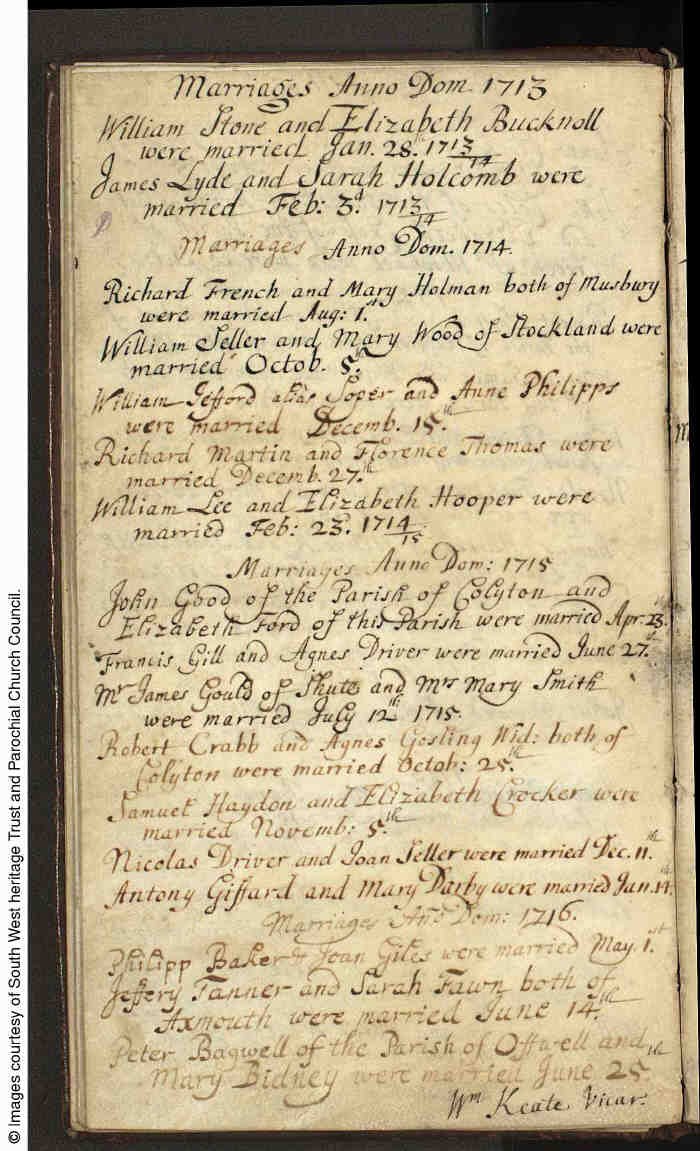 Marriages Anno Dom. 1713
William Stone and Elizabeth Bucknoll
were married Jan. 28. 1713/14
James Lyde and Sarah Holcomb were
married Feb: 3d. 1713/14
Marriages Anno Dom. 1714.
Richard French and Mary Holman both of Musbury
were married Aug: 1st.
William Seller and Mary Wood of Stockland were
married Octob. 5th.
William Jefford alias Soper and Anne Philipps
were married Decemb. 15th.
Richard Martin and Florence Thomas were
married Decemb. 27th.
William Lee and Elizabeth Hooper were
married Feb: 23. 1714/15
Marriages Anno Dom: 1715
John Good of the Parish of Colyton and
Elizabeth Ford of this Parish were married Apr: 23th.
Francis Gill and Agnes Driver were married June 27th.
Mr James Gould of Shute and Mrs Mary Smith
were married July 12th 1715.
Robert Crabb and Agnes Gosling Wid: both of
Colyton were married Octob: 25th.
Samuel Haydon and Elizabeth Crocker were
married Novemb: 5th.
Nicolas Driver and Joan Seller were married Dec. 11th.
Antony Giffard and Mary Darby were married Jan. 14th.
Marriages Ano Dom: 1716.
Philipp Baker & Joan Giles were married May. 1st.
Jeffery Tanner and Sarah Fawn both of
Axmouth were married June 14th.
Peter Bagwell of the Parish of Offwell and
Mary Bidney were married June 25th.
Wm Keate Vicar.
© Images courtesy of South West heritage Trust and Parochial Church Council.